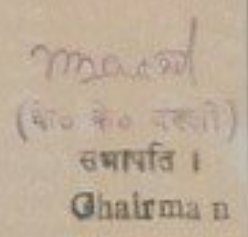 (के० के० बख्शी)
सभापति ।
Chairman